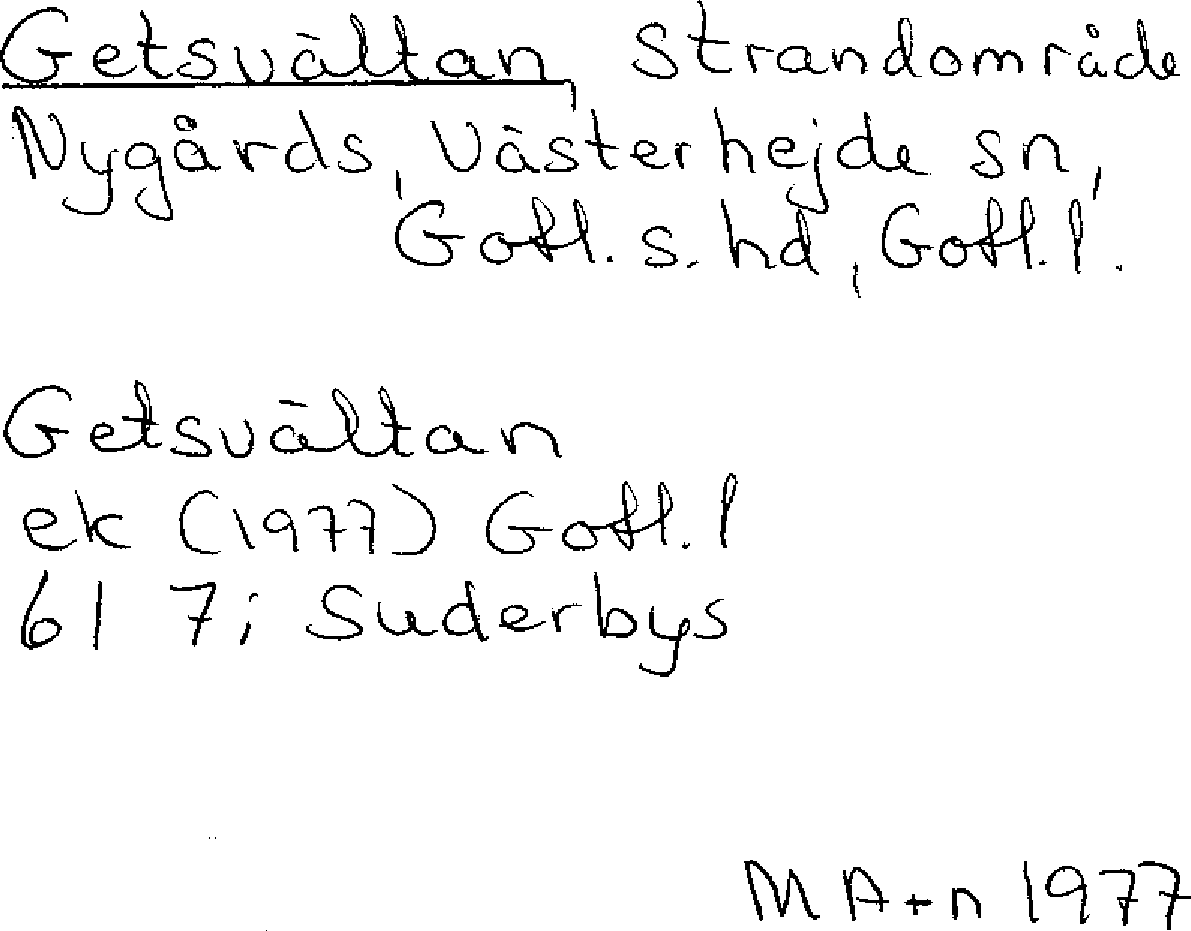 Getsvältan, strandområde
Nygårds, Västerhejde sn,
Gotl. s. hd, Gotl. l.
Getsvältan
ek (1977) Gotl. l
61 7i Suderbys
MA+n 1977